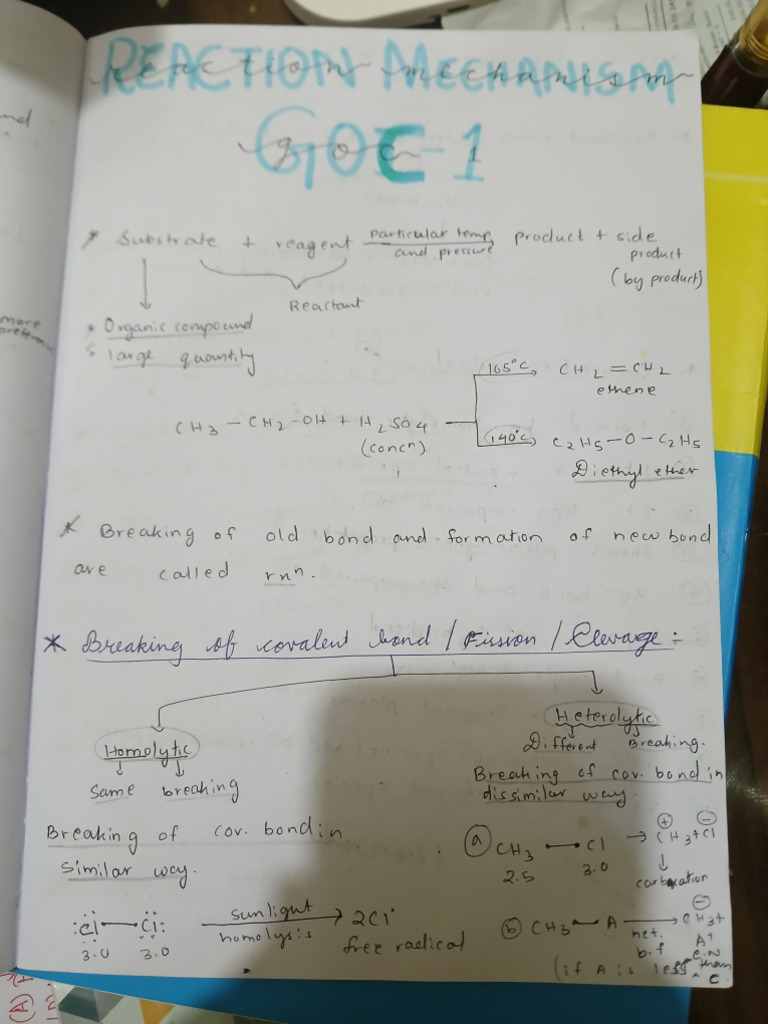 REACTION MECHANISM
reaction mechanism
GOC-1
goc 1
* Substrate + reagent particular temp and pressure product + side product (by product)
Reactant
* Organic compound
large quantity
CH3 - CH2 - OH + H2SO4 (concn)
165°C CH2 = CH2
ethene
140°C C2H5 - O - C2H5
Diethyl ether
* Breaking of old bond and formation of new bond
are called rxn.
* Breaking of covalent bond / Fission / Clevarge :
Homolytic
Same breaking
Breaking of cov. bond in
similar way.
:Cl — Cl: sunlight homolysis → 2Cl•
3.0 3.0 free radical
Heterolytic
Different Breaking.
Breaking of cov. bond in
dissimilar way.
(a) CH3 — Cl → CH3⊕ + Cl⊖
2.5 3.0
carbocation
(b) CH3 — A het. b.f → CH3⊖ + A+
(if A is less e.N than C
more